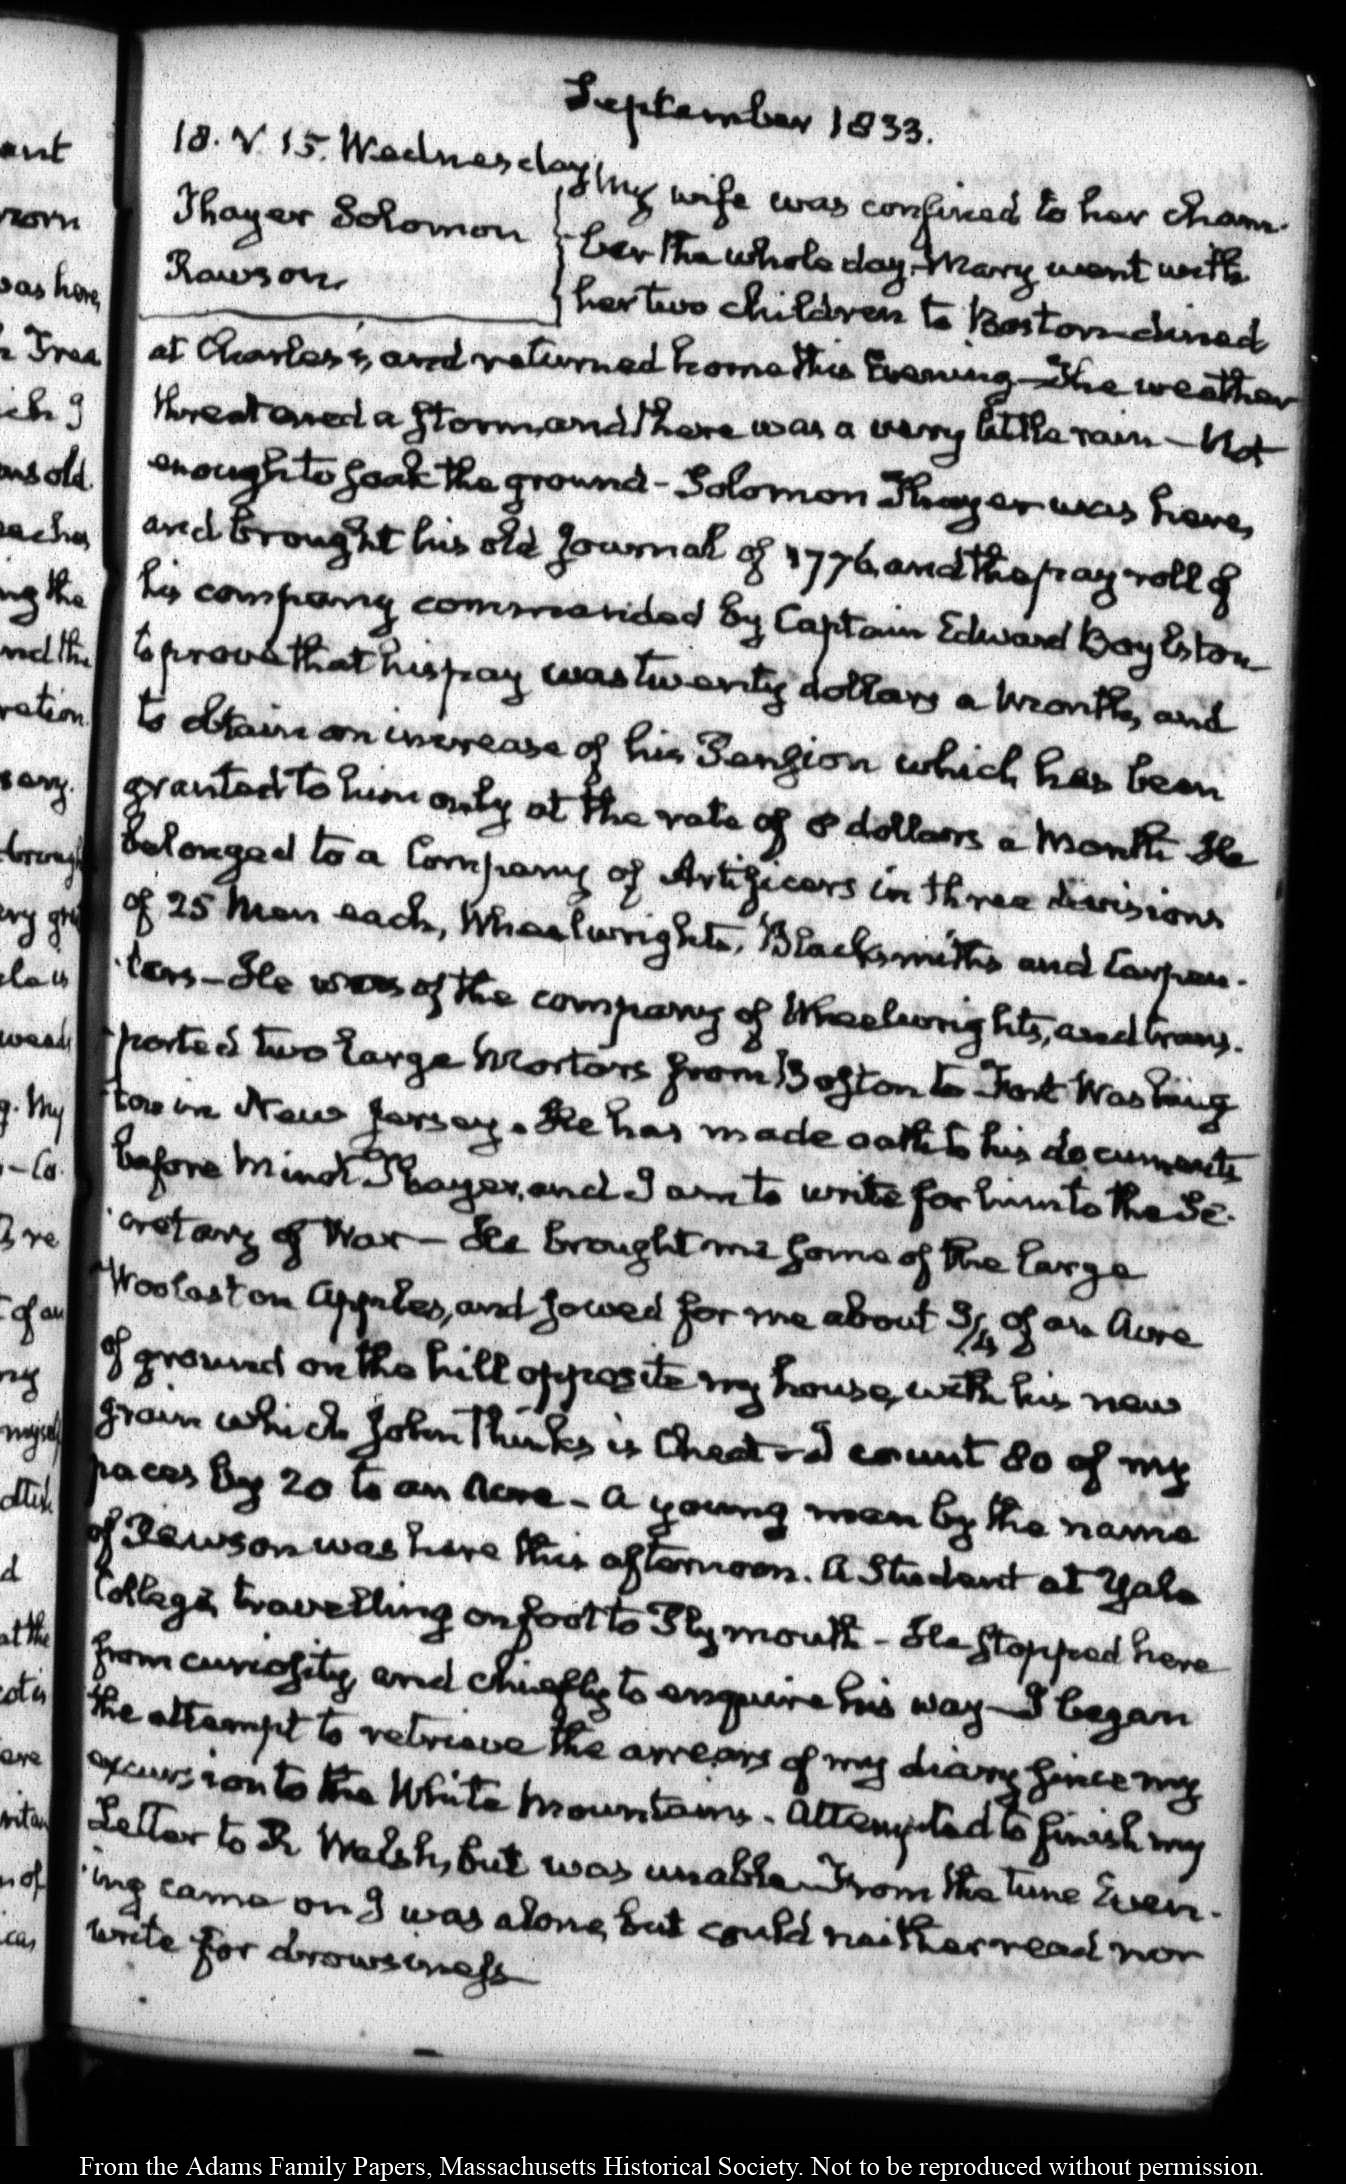 September 1833.
18. V. 15. Wednesday.
Thayer Solomon
Rawson.
My wife was confined to her cham-
ber the whole day. Mary went with
her two children to Boston—dined
at Charles's, and returned home this Evening—The weather
threatened a storm, and there was a very little rain—Not
enough to soak the ground—Solomon Thayer was here,
and brought his old Journal of 1776, and the pay roll of
his company commanded by Captain Edward Boylston
to prove that his pay was twenty dollars a Month, and
to obtain an increase of his Pension which has been
granted to him only at the rate of 8 dollars a Month. He
belonged to a Company of Artificers in three divisions
of 25 Men each, Wheelwrights, Blacksmiths and Carpen-
ters—He was of the company of Wheelwrights, and trans-
ported two large Mortars from Boston to Fort Washing
ton in New Jersey. He has made oath to his documents
before Minot Thayer, and I am to write for him to the Se-
cretary of War—He brought me some of the large
Woolaston Apples, and sowed for me about 3/4 of an Acre
of ground on the hill opposite my house, with his new
grain which John thinks is Cheat—I count 80 of my
paces by 20 to an Acre—A young man by the name
of Rawson was here this afternoon. A Student at Yale
College, travelling on foot to Plymouth—He stopped here
from curiosity, and chiefly to enquire his way—I began
the attempt to retrieve the arrears of my diary since my
excursion to the White Mountains. Attempted to finish my
Letter to Dr Welsh, but was unable—From the time Even-
ing came on I was alone, but could neither read nor
write for drowsiness
ant
was here,
Tree
ich I
old
ing the
and the
brough
very gre
My
Co.
re
of an
my
myself
d
at the
are
of
From the Adams Family Papers, Massachusetts Historical Society. Not to be reproduced without permission.